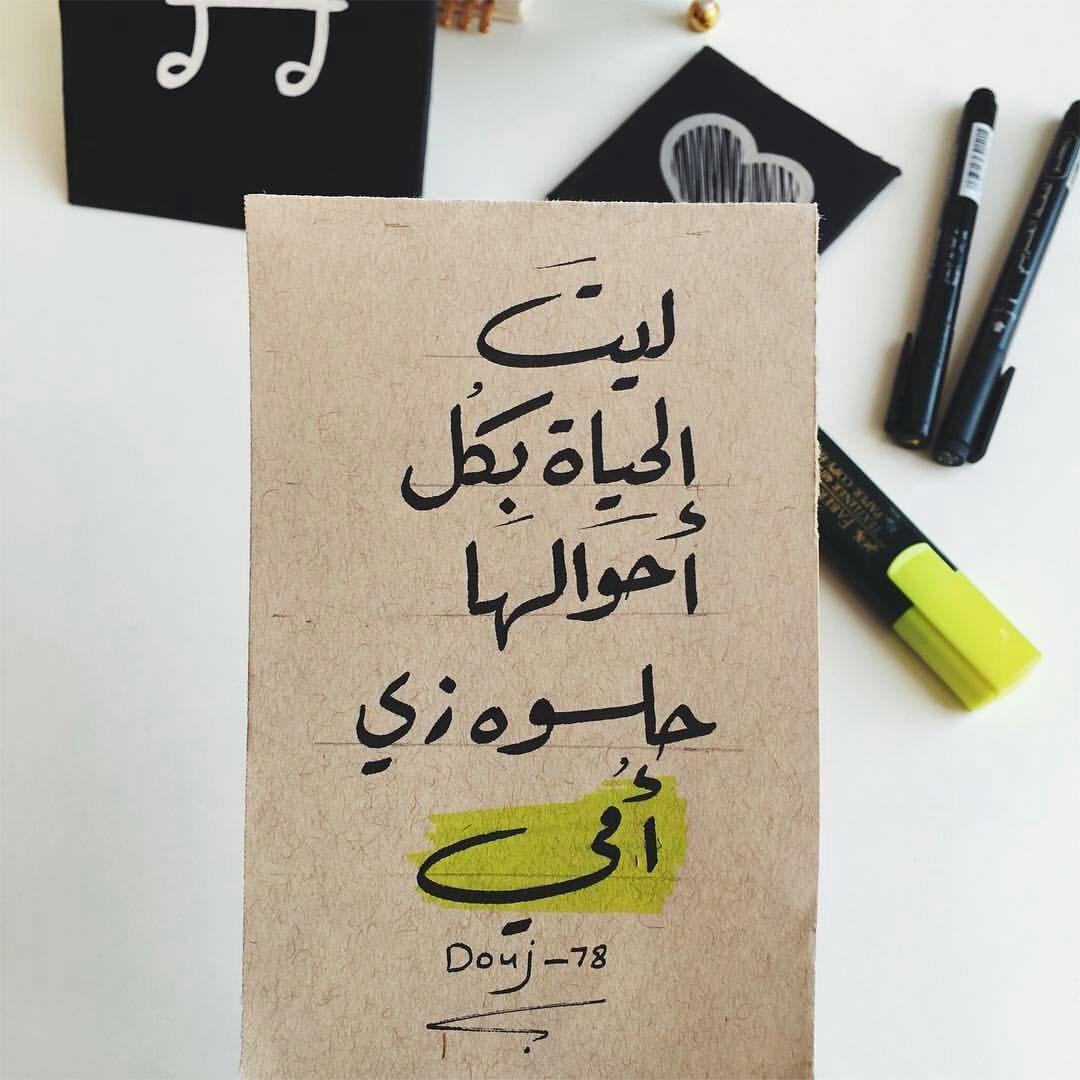 ليتَ
الحيَاة بِكُل
أحوَالها
حلسوه زي
أُمي
Douj-78